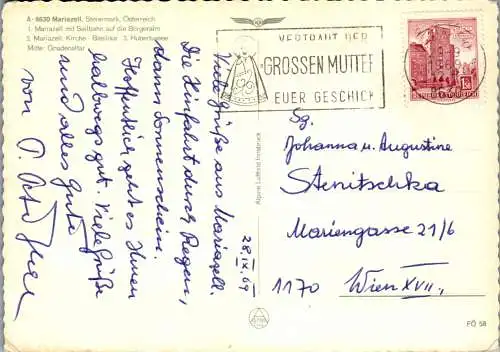 A - 8630 Mariazell, Steiermark, Österreich
1. Mariazell mit Seilbahn auf die Bürgeralm
2. Mariazell, Kirche - Basilika 3. Hubertussee
Mitte: Gnadenaltar
VERTRAUT DER
GROSSEN MUTTER
EUER GESCHICK
Viele Grüße aus Mariazell.
28.IX.69
Die Hinfahrt durch Regen,
dann Sonnenschein.
Hoffentlich geht es Ihnen
halbwegs gut. Viele Grüße
und alles Gute
von P.
Alpine Luftbild Innsbruck
Johanna u. Augustine
Stenitschka
Mariengasse 21/6
1170 Wien XVII.,
FÖ 58